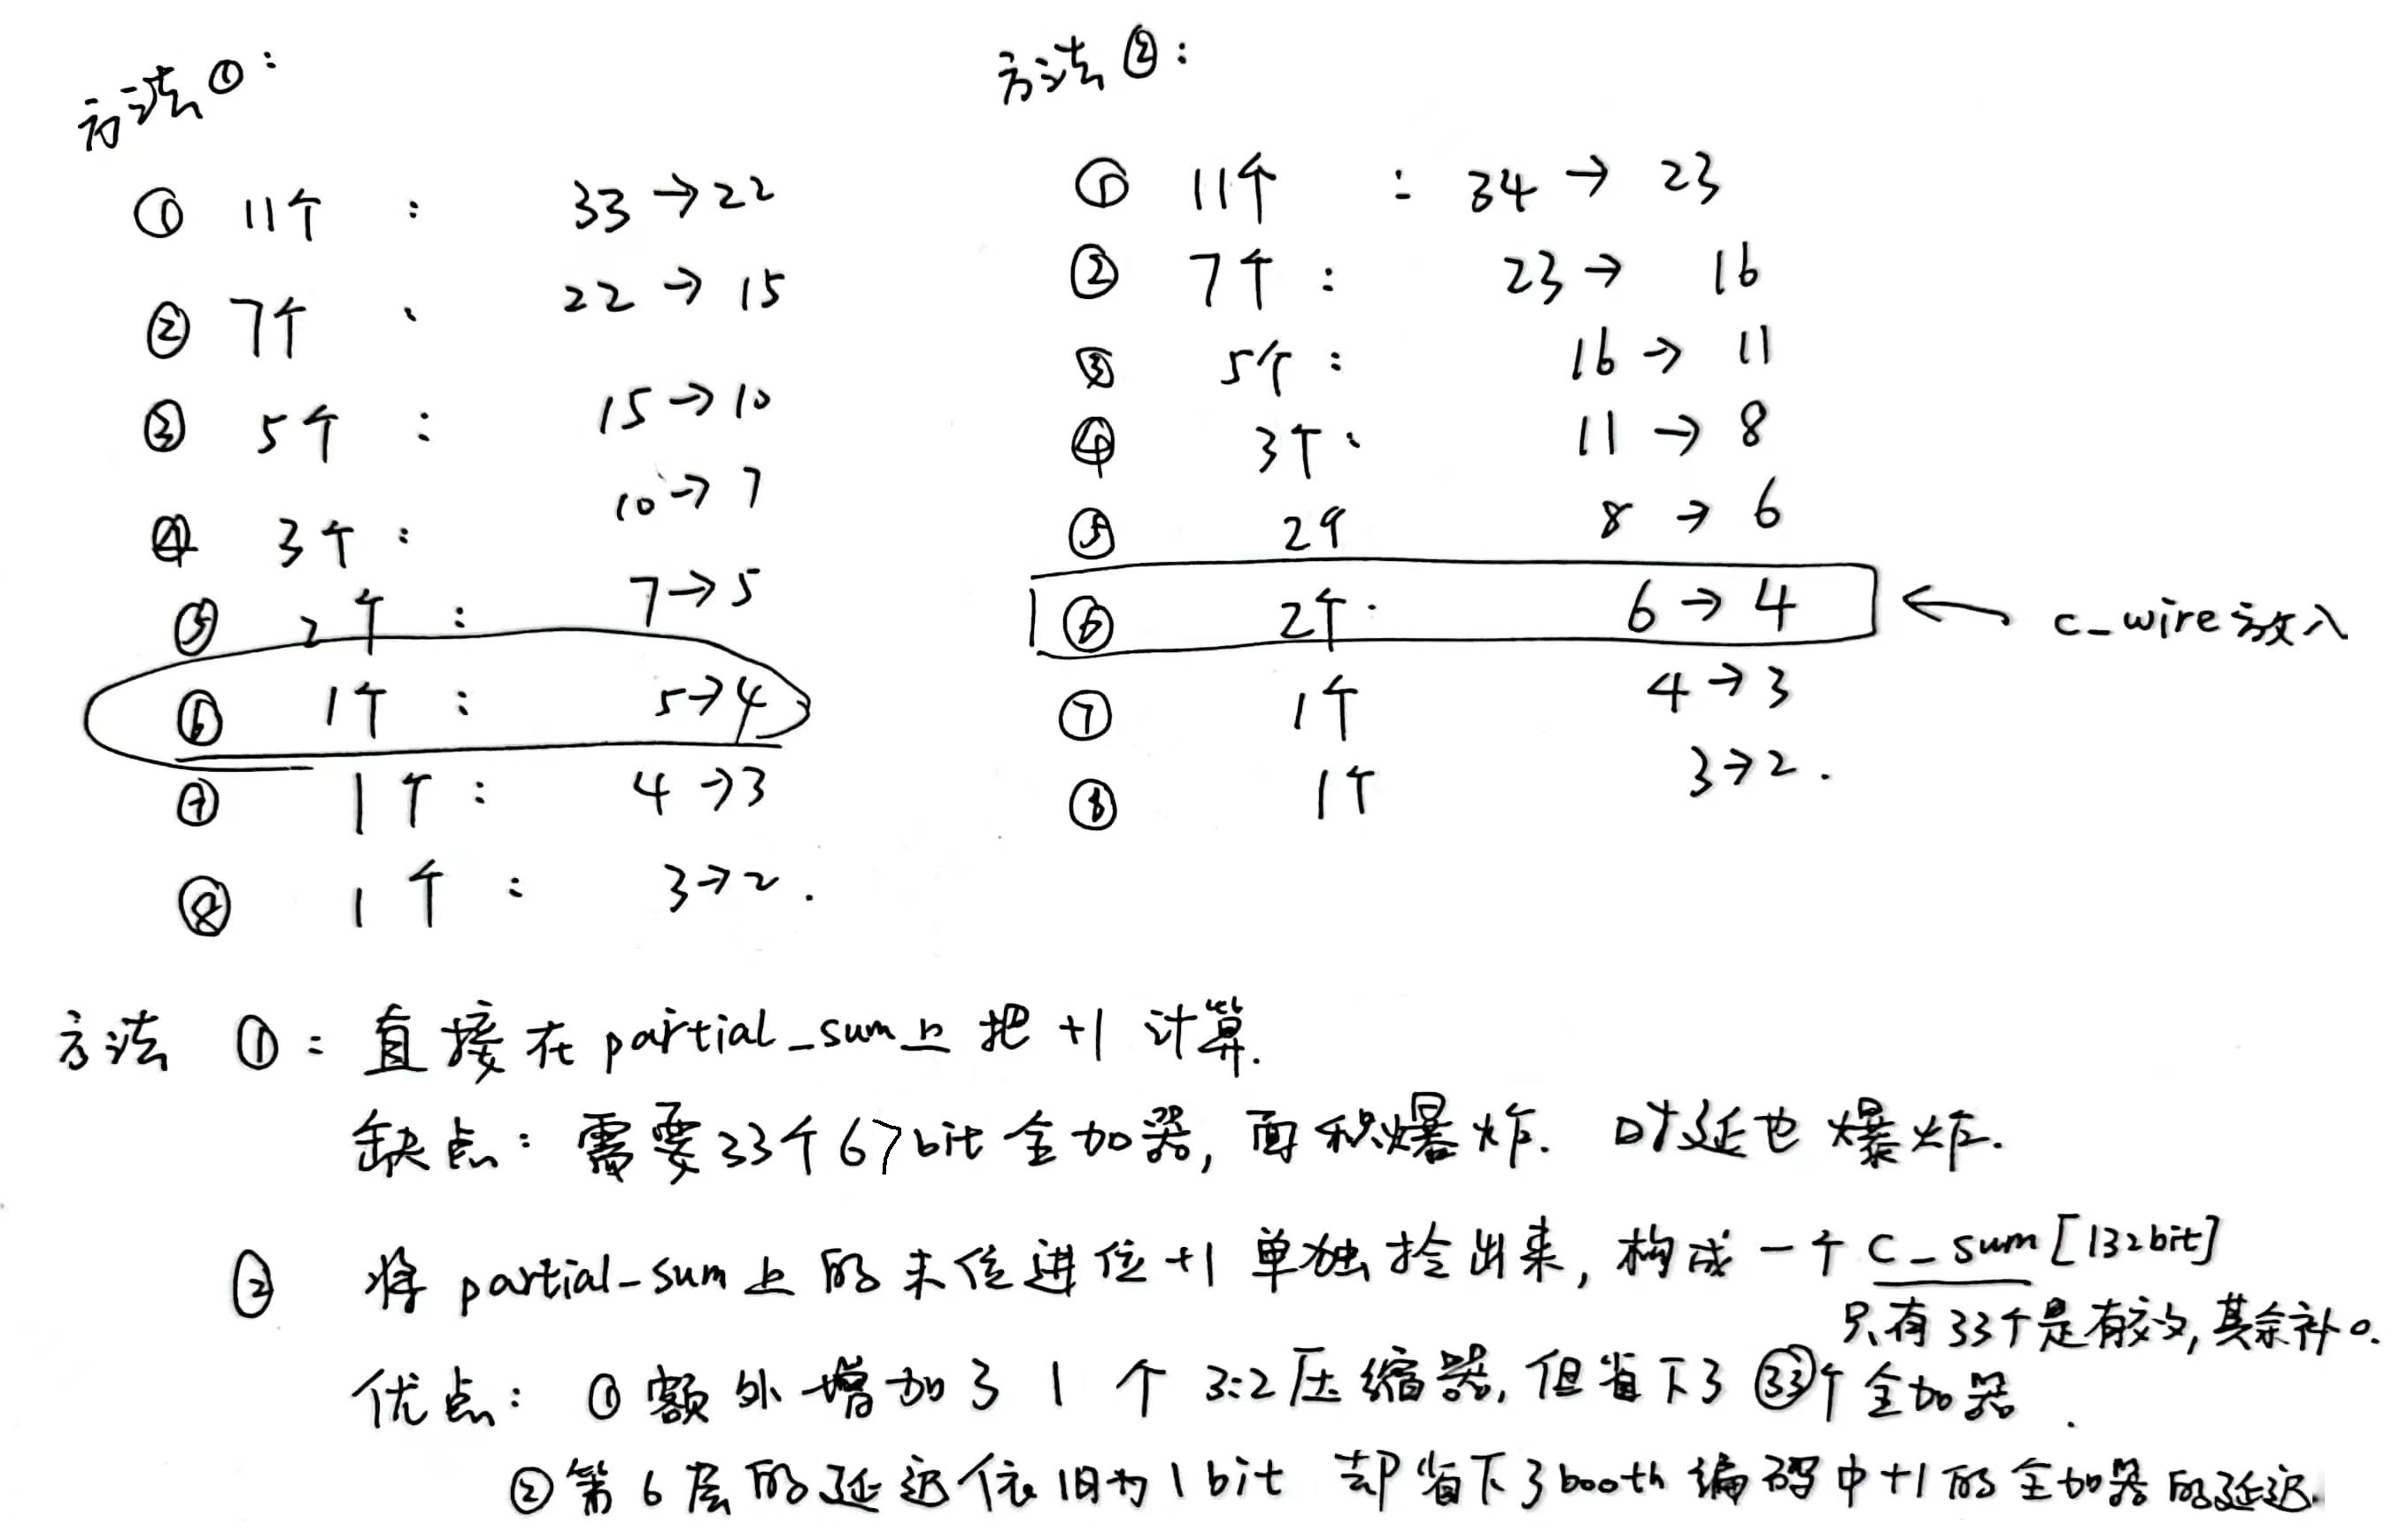 方法①:
① 11个 : 33→22
② 7个 : 22→15
③ 5个 : 15→10
④ 3个 : 10→7
⑤ 2个 : 7→5
⑥ 1个 : 5→4
⑦ 1个 : 4→3
⑧ 1个 : 3→2.
方法②:
① 11个 : 34→23
② 7个 : 23→16
③ 5个 : 16→11
④ 3个: 11→8
⑤ 2个 8→6
⑥ 2个· 6→4 ← c_wire放入
⑦ 1个 4→3
⑧ 1个 3→2.
方法 ①: 直接在partial_sum上把+1计算.
缺点: 需要33个67bit全加器, 面积爆炸. 时延也爆炸.
② 将partial-sum上的末位进位+1单独拎出来, 构成一个C_sum[132bit]
只有33个是有效, 其余补0.
优点: ①额外增加了1个3:2压缩器, 但省下了㉝个全加器.
②第6层的延迟依旧为1bit 却省下了booth编码中+1的全加器的延迟.